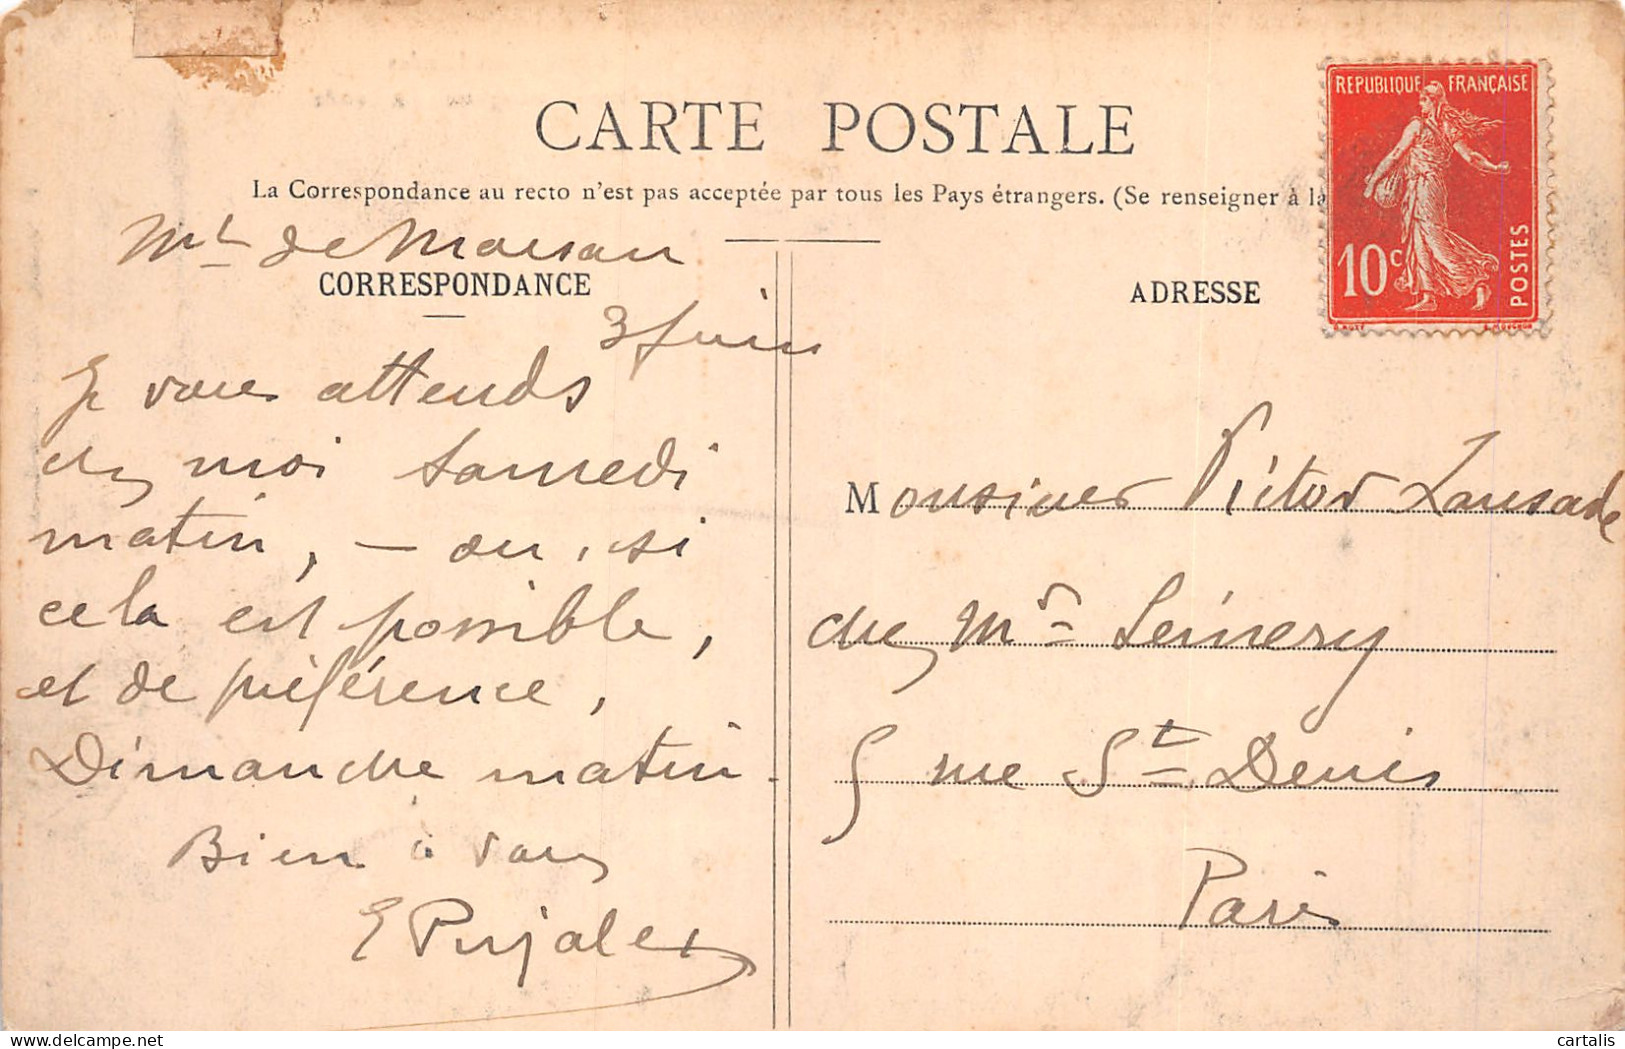 CARTE POSTALE
La Correspondance au recto n'est pas acceptée par tous les Pays étrangers. (Se renseigner à la
REPUBLIQUE FRANÇAISE
10c
POSTES
CORRESPONDANCE
Mt de Marsan
3 Juin
Je vous attends
chez moi samedi
matin, — ou, si
cela est possible,
et de préférence,
Dimanche matin.
Bien à vous
E Pujalet
ADRESSE
Monsieur Victor Lansade
chez Mr Lémery
5 rue St Denis
Paris
cartalis
delcampe.net